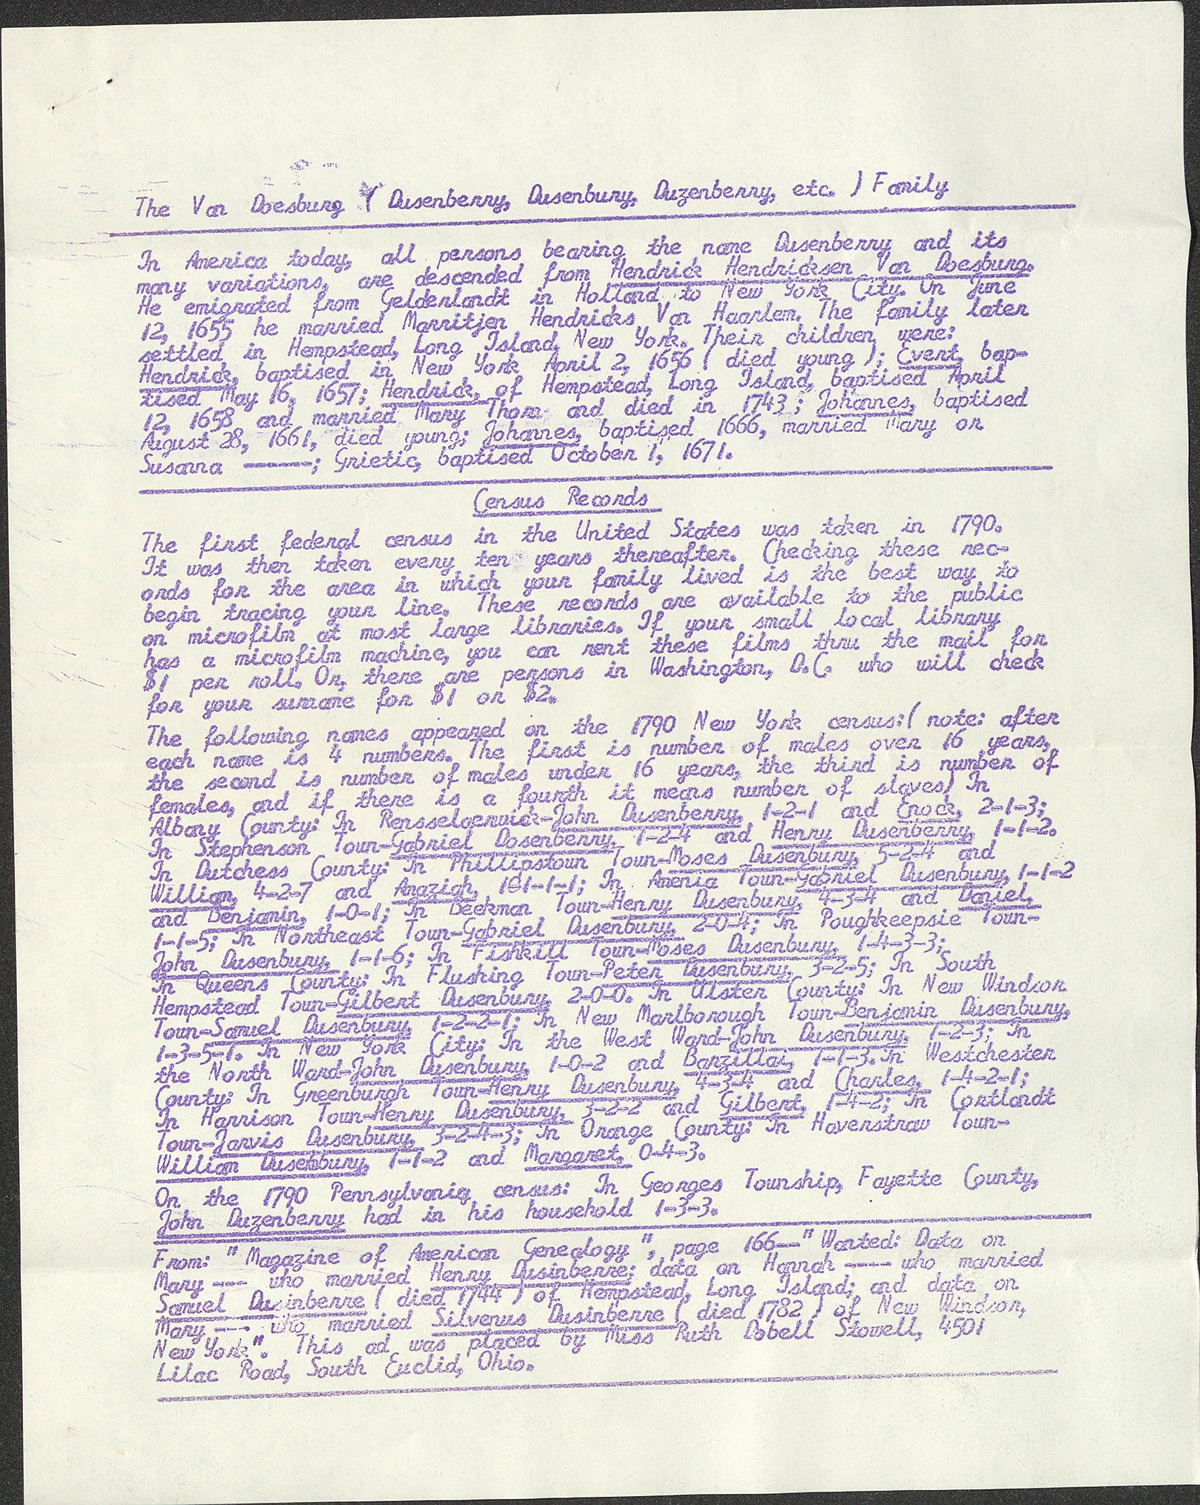 The Van Doesburg ( Dusenberry, Dusenbury, Duzenberry, etc. ) Family
In America today, all persons bearing the name Dusenberry and its
many variations, are descended from Hendrick Hendricksen Van Doesburg.
He emigrated from Geldenlandt in Holland to New York City. On June
12, 1655 he married Marritjen Hendricks Van Haarlem. The family later
settled in Hempstead, Long Island, New York. Their children were:
Hendrick, baptised in New York April 2, 1656 ( died young ); Evert, bap-
tised May 16, 1657; Hendrick, of Hempstead, Long Island, baptised April
12, 1658 and married Mary Thorn and died in 1743; Johannes, baptised
August 28, 1661, died young; Johannes, baptised 1666, married Mary or
Susanna ----; Grietic, baptised October 1, 1671.
Census Records
The first federal census in the United States was taken in 1790.
It was then taken every ten years thereafter. Checking these rec-
ords for the area in which your family lived is the best way to
begin tracing your line. These records are available to the public
on microfilm at most large libraries. If your small local library
has a microfilm machine, you can rent these films thru the mail for
$1 per roll. Or, there are persons in Washington, D.C. who will check
for your surname for $1 or $2.
The following names appeared on the 1790 New York census:( note: after
each name is 4 numbers. The first is number of males over 16 years,
the second is number of males under 16 years, the third is number of
females, and if there is a fourth it means number of slaves) In
Albany County: In Rensselaerwick-John Dusenberry, 1-2-1 and Enock, 2-1-3;
In Stephenson Town-Gabriel Dosenberry, 1-2-4 and Henry Dusenberry, 1-1-2.
In Dutchess County: In Phillipstown Town-Moses Dusenbury, 3-2-4 and
William, 4-2-7 and 1-1-1; In Amenia Town-Gabriel Dusenbury, 1-1-2
and Benjamin, 1-0-1; In Beekman Town-Henry Dusenbury, 4-3-4 and Daniel,
1-1-5; In Northeast Town-Gabriel Dusenbury, 2-0-4; In Poughkeepsie Town-
John Dusenbury, 1-1-6; In Fishkill Town-Moses Dusenbury, 1-4-3-3;
In Queens County: In Flushing Town-Peter Dusenbury, 3-2-5; In South
Hempstead Town-Gilbert Dusenbury, 2-0-0. In Ulster County: In New Windsor
Town-Samuel Dusenbury, 1-2-2-1; In New Marlborough Town-Benjamin Dusenbury,
1-3-5-1. In New York City: In the West Ward-John Dusenbury, 1-2-3; In
the North Ward-John Dusenbury, 1-0-2 and Barzillai, 1-1-3. In Westchester
County: In Greenburgh Town-Henry Dusenbury, 4-3-4 and Charles, 1-4-2-1;
In Harrison Town-Henry Dusenbury, 3-2-2 and Gilbert, 1-4-2; In Cortlandt
Town-Jarvis Dusenbury, 3-2-4-3; In Orange County: In Haverstraw Town-
William Dusenbury, 1-1-2 and Margaret, 0-4-3.
On the 1790 Pennsylvania census: In Georges Township, Fayette County,
John Duzenberry had in his household 1-3-3.
From: "Magazine of American Genealogy", page 166--"Wanted: Data on
Mary --- who married Henry Dusinberre; data on Hannah ---- who married
Samuel Dusinberre ( died 1744 ) of Hempstead, Long Island; and data on
Mary ---- who married Silvenus Dusinberre ( died 1782 ) of New Windsor,
New York". This ad was placed by Miss Ruth Dobell Stowell, 4501
Lilac Road, South Euclid, Ohio.